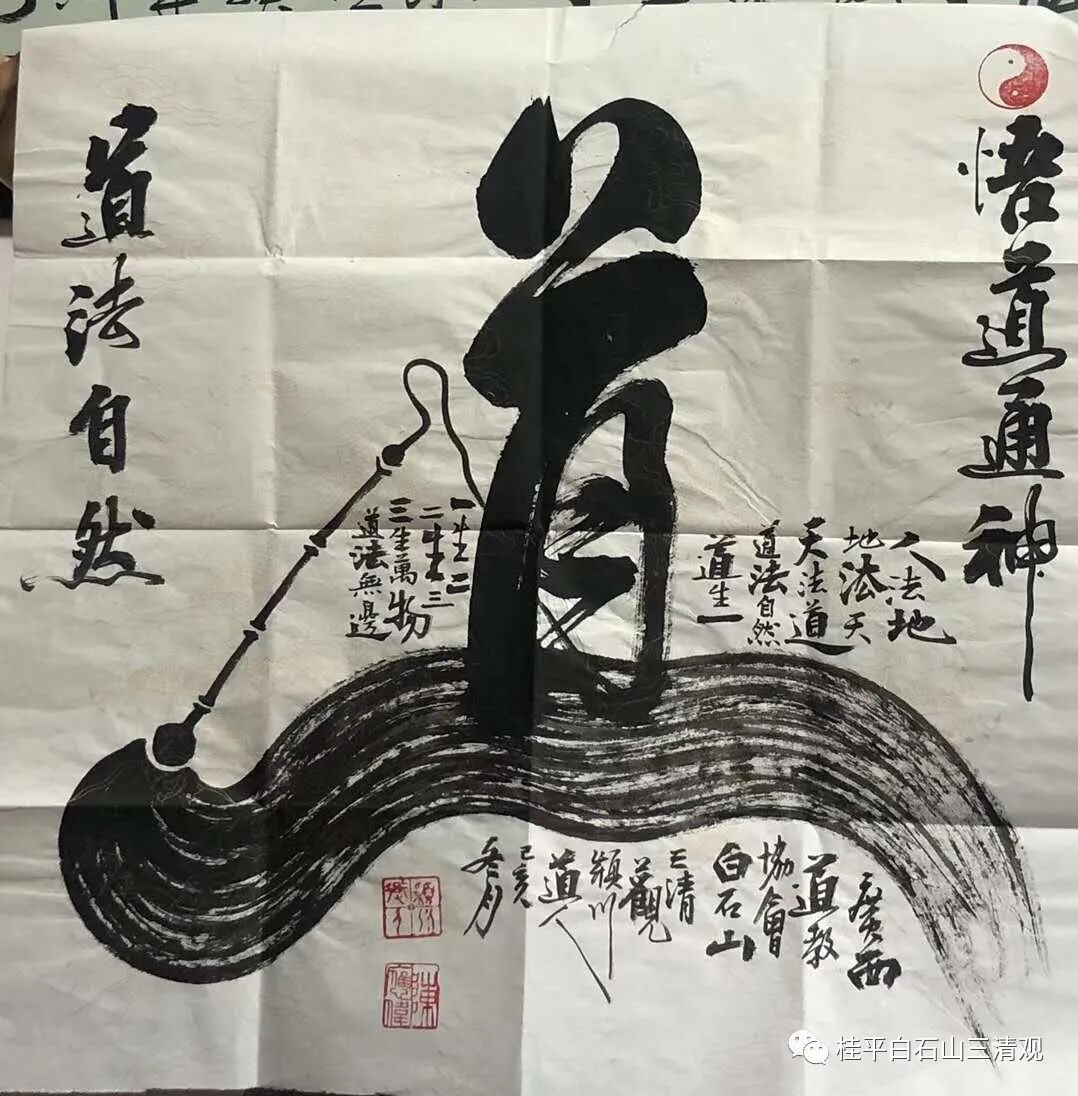 悟道通神
道
人法地
地法天
天法道
道法自然
道生一
一生二
二生三
三生萬物
道法無邊
道法自然
廣西
道教
協會
白石山
三清
觀
潁川
道人
己亥
冬月
陳
應偉
桂平白石山三清观